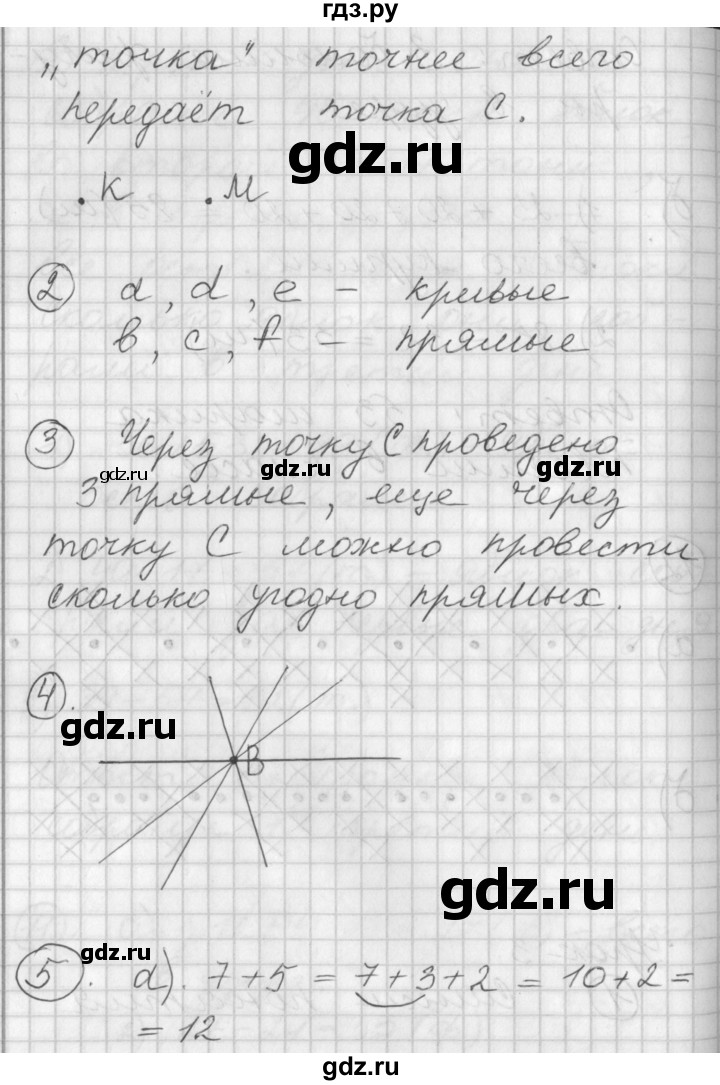 гдз.ру
„точка“ точнее всего
передаёт точка С.
gdz.ru
.К .М
② a, d, e – кривые
b, c, f – прямые
③ Через точку С проведено
gdz.ru gdz.ru gdz.ru
3 прямые, еще через
точку С можно провести
сколько угодно прямых.
④.
gdz.ru
B
gdz.ru
gdz.ru
⑤. а). 7 + 5 = 7 + 3 + 2 = 10 + 2 =
= 12
gdz.ru
gdz.ru